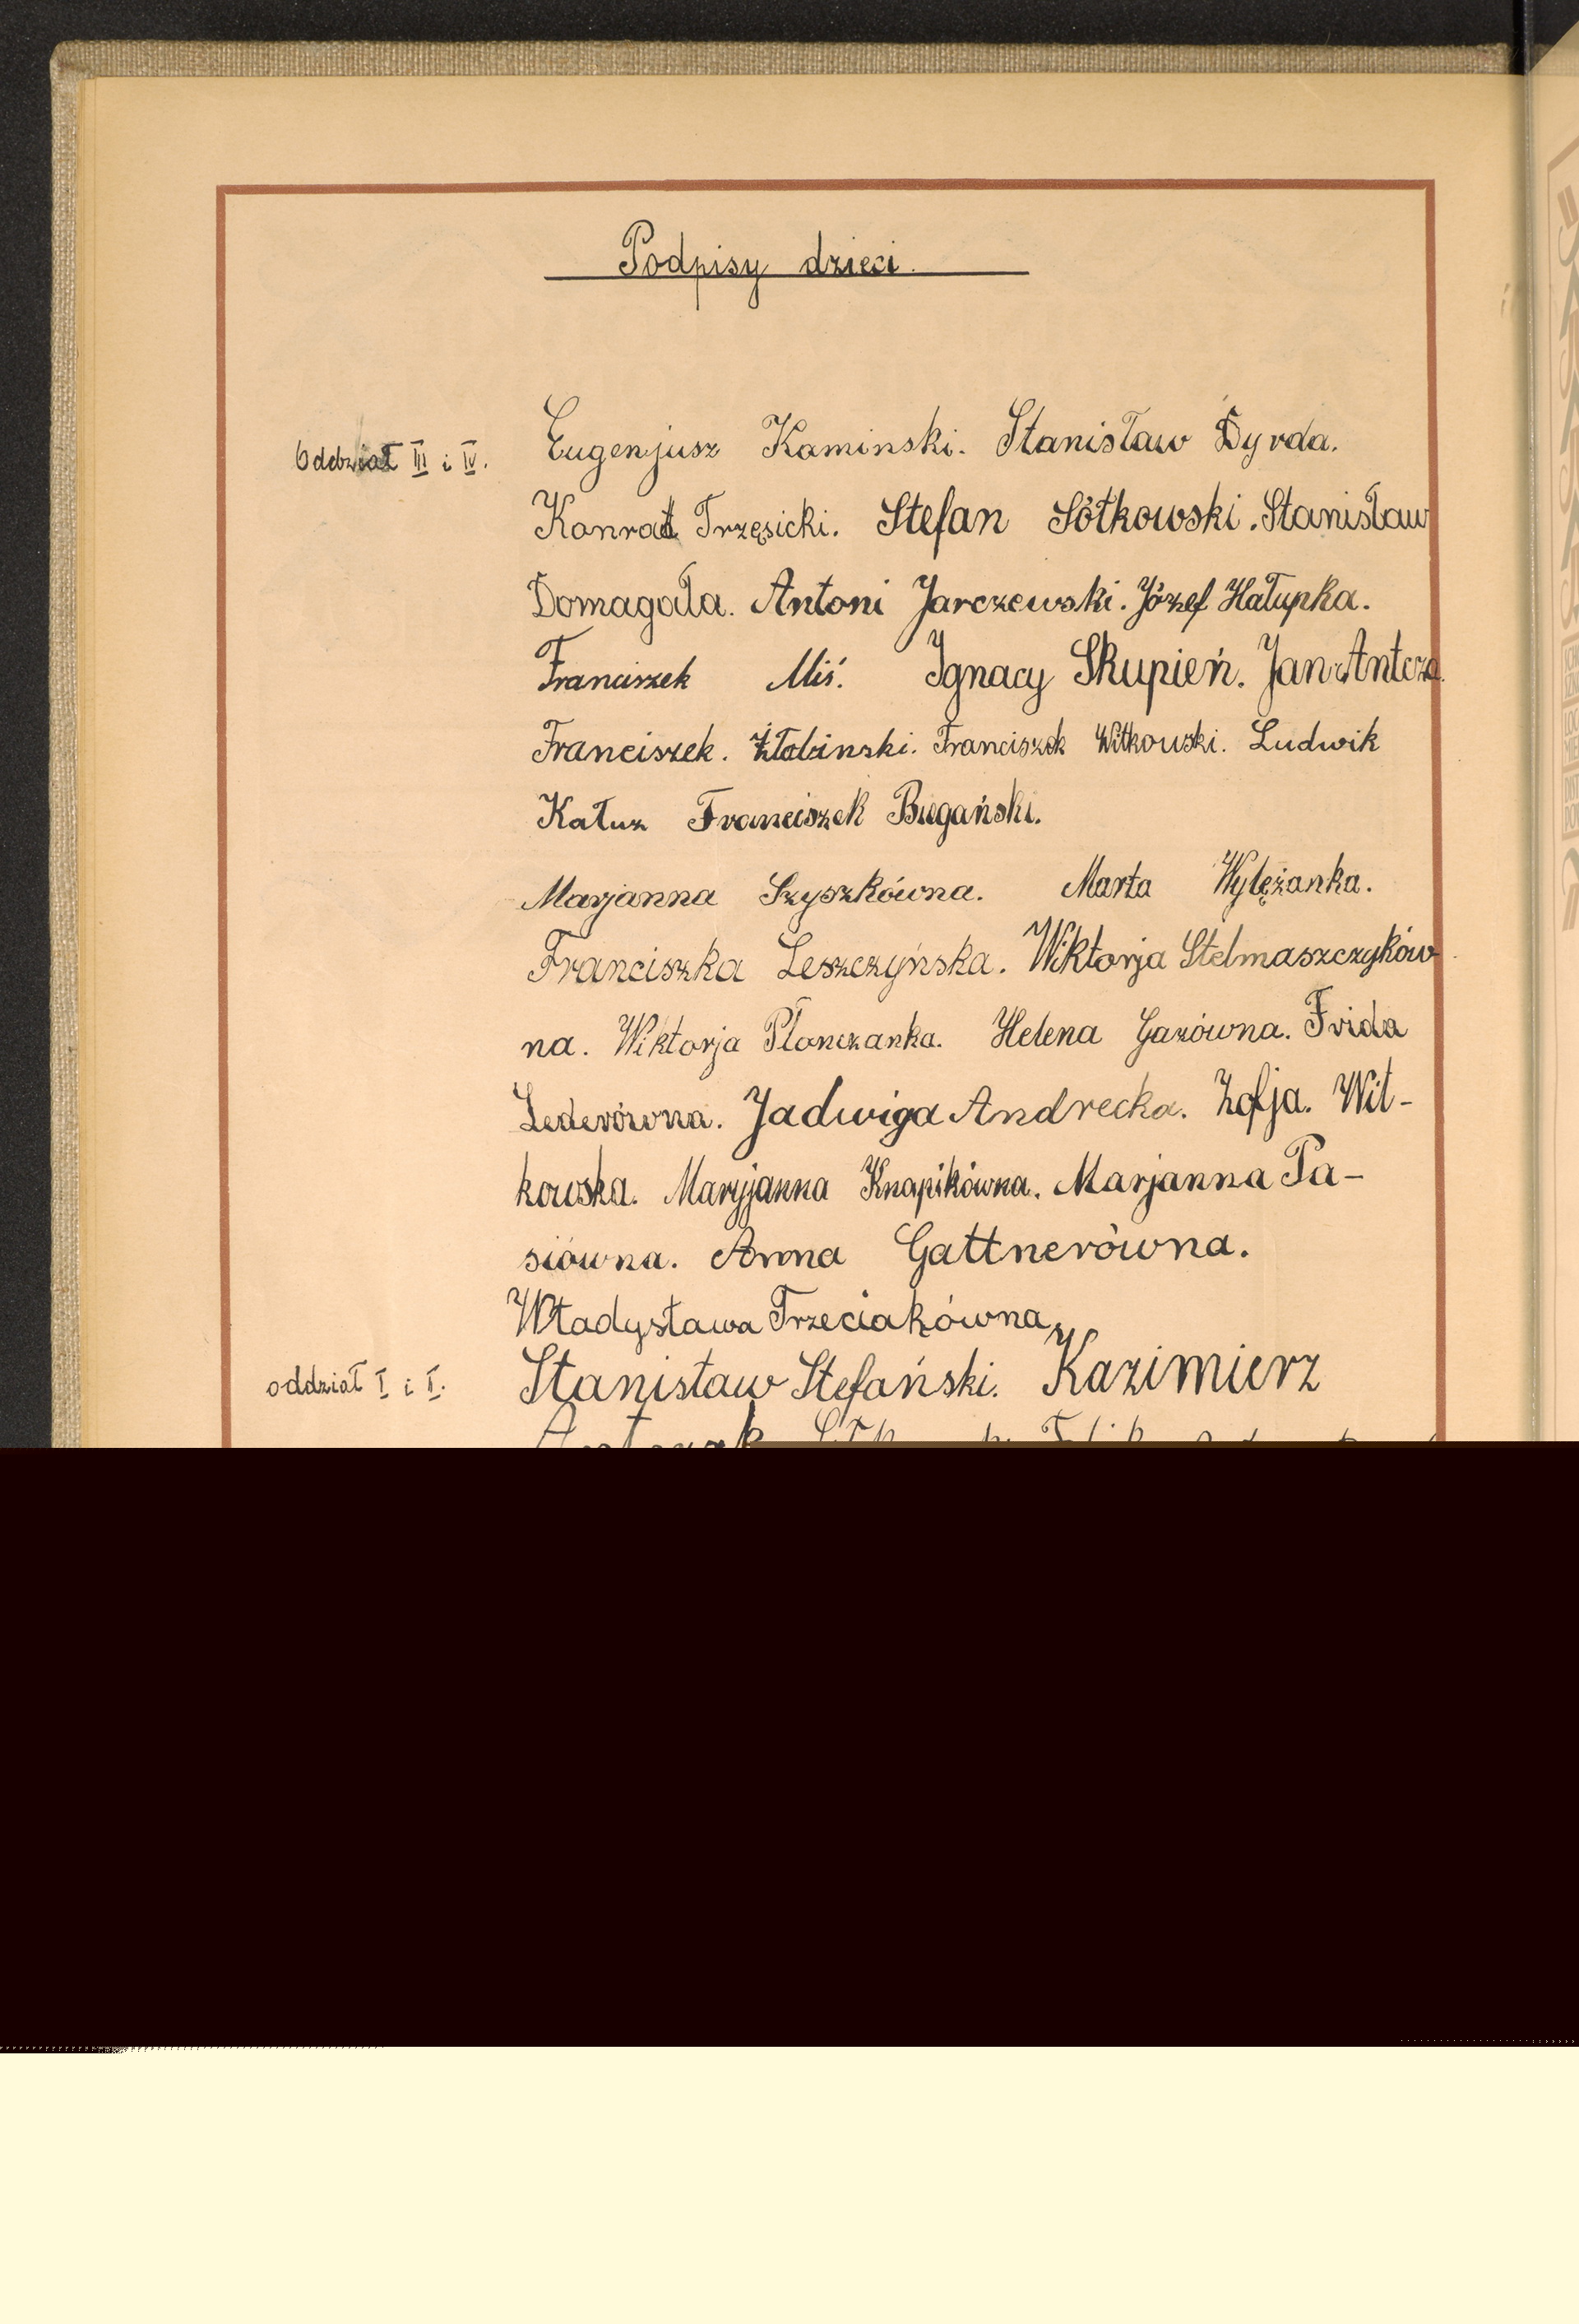 Podpisy dzieci.
Oddział III i IV. Eugenjusz Kaminski. Stanisław Dyrda.
Konrat Trzęsicki. Stefan Sótkowski. Stanisław
Domagała. Antoni Jarczewski. Józef Hałupka.
Franciszek Miś. Ignacy Skupień. Jan Antcza
Franciszek. Żłobinski. Franciszek Witkowski. Ludwik
Kałuz Franciszek Bugański.
Marjanna Szyszkówna. Marta Wylężanka.
Franciszka Leszczyńska. Wiktorja Stelmaszczyków
na. Wiktorja Płonczanka. Helena Gazówna. Frida
Lederówna. Jadwiga Andrecka. Zofja. Wit-
kowska. Maryjanna Knapikówna. Marjanna Pa-
siówna. Anna Gattnerówna.
Władysława Trzeciakówna.
oddział I i I. Stanisław Stefański. Kazimierz